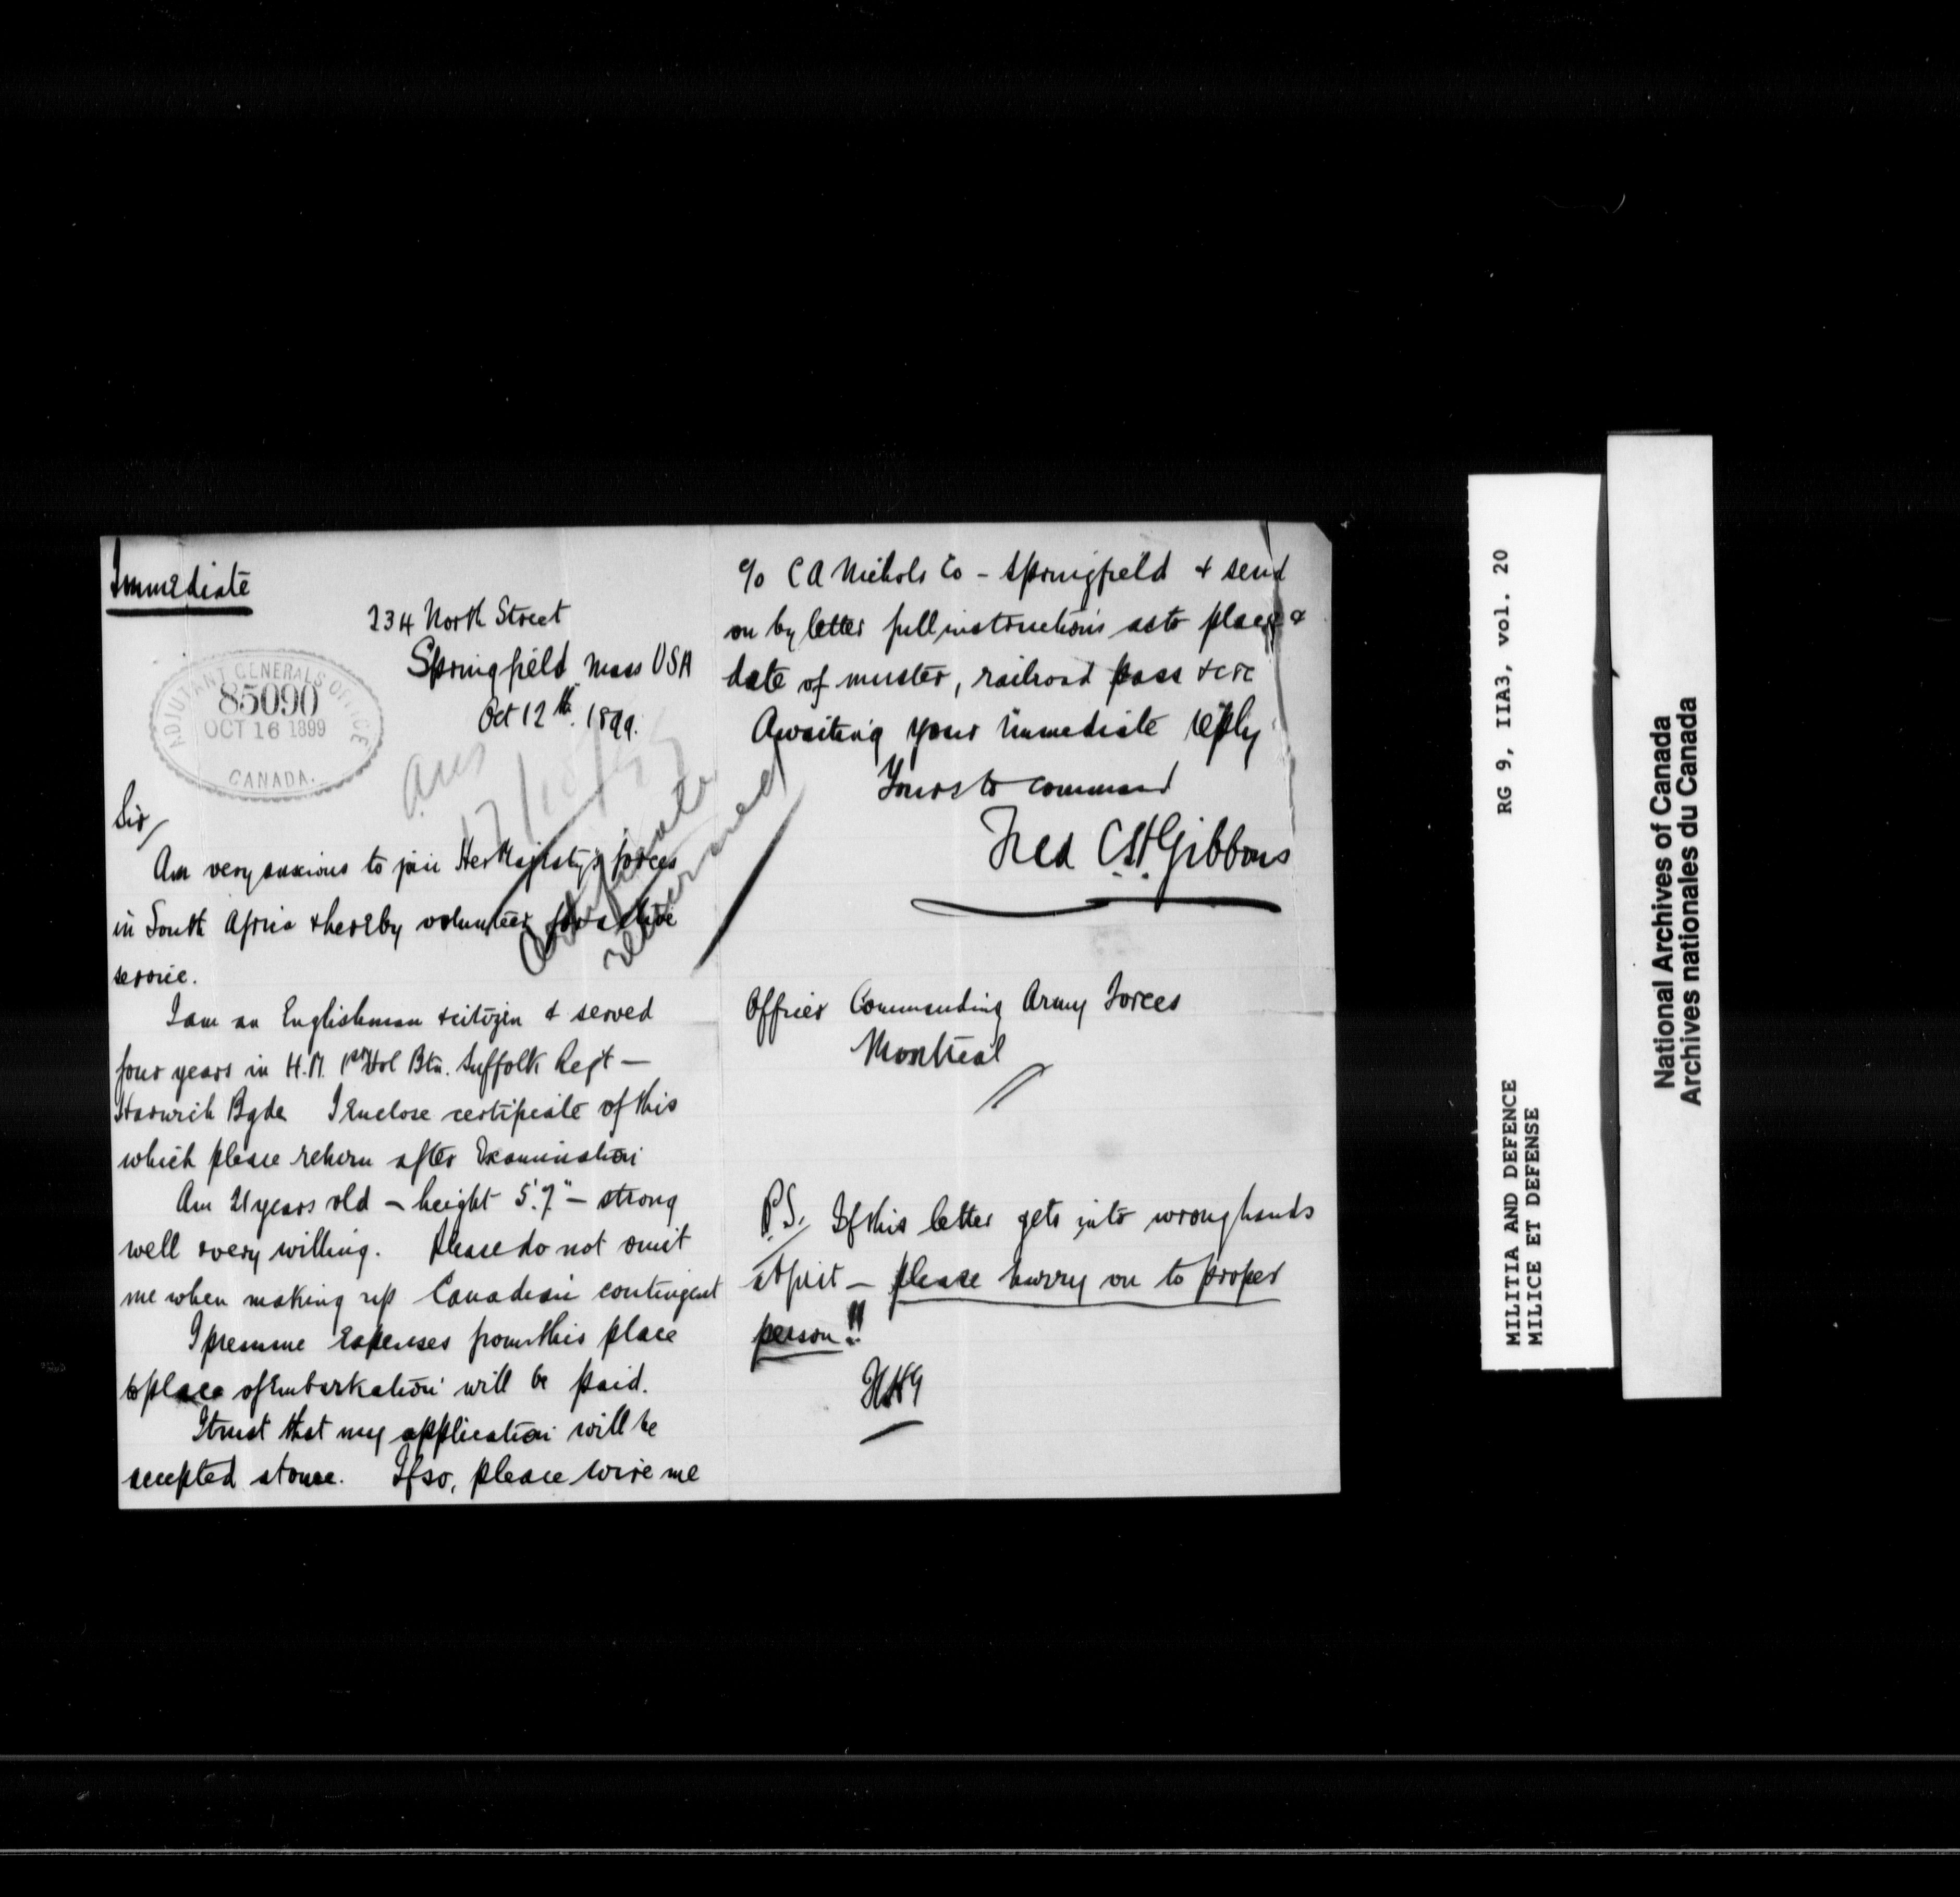 Immediate
234 North Street
Springfield Mass USA
Oct 12th. 1899.
ADJUTANT GENERALS OFFICE
85090
OCT 16 1899
CANADA.
ans
17/10/99
Certificate
returned
Sir/
Am very anxious to join Her Majesty's forces
in South Africa & hereby volunteer for active
service.
I am an Englishman & citizen & served
four years in H.M. 1st Vol Btn. Suffolk Regt —
Harwich Bgde I Enclose certificate of this
which please return after Examination
Am 21 years old – height 5'.7" – strong
well & very willing. Please do not omit
me when making up Canadian contingent
I presume Expenses from this place
to place of Embarkation will be paid.
I trust that my application will be
accepted at once. If so, please wire me
c/o C A Nichols Co – Springfield & send
on by letter full instructions as to place &
date of muster, railroad pass & etc
Awaiting your immediate reply
Yours to command
Fred C.H. Gibbons
Officer Commanding Army Forces
Montreal
P.S./ If this letter gets into wrong hands
at first – please hurry on to proper
person!!
RG 9, IIA3, vol. 20
MILITIA AND DEFENCE
MILICE ET DEFENSE
National Archives of Canada
Archives nationales du Canada